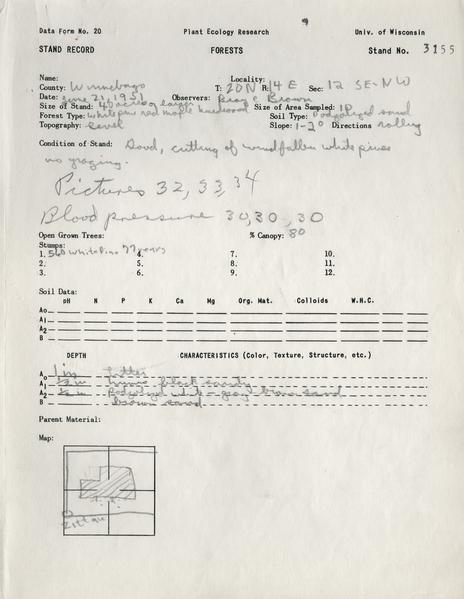 Data Form No. 20 Plant Ecology Research Univ. of Wisconsin
STAND RECORD FORESTS Stand No. 3155
Name: Locality:
County: Winnebago T: 20N R: 14E Sec: 12 SE-NW
Date: June 21, 1951 Observers: Brown
Size of Stand: 40 acres or larger Size of Area Sampled: 1P
Forest Type: white pine red maple hardwood Soil Type: Podzolized sand
Topography: Level Slope: 1-2° Directions rolling
Condition of Stand: Good, cutting of windfallen white pines
no grazing.
Pictures 32, 33, 34
Blood pressure 30, 30, 30
Open Grown Trees: % Canopy: 80
Stumps:
1. White Pine 77 years 4. 7. 10.
2. 5. 8. 11.
3. 6. 9. 12.
Soil Data:
pH N P K Ca Mg Org. Mat. Colloids W.H.C.
Ao
A1
A2
B
DEPTH CHARACTERISTICS (Color, Texture, Structure, etc.)
Ao 1 in litter
A1 humus black sandy
A2 Podzolized white-gray brown sand
B brown sand
Parent Material:
Map: